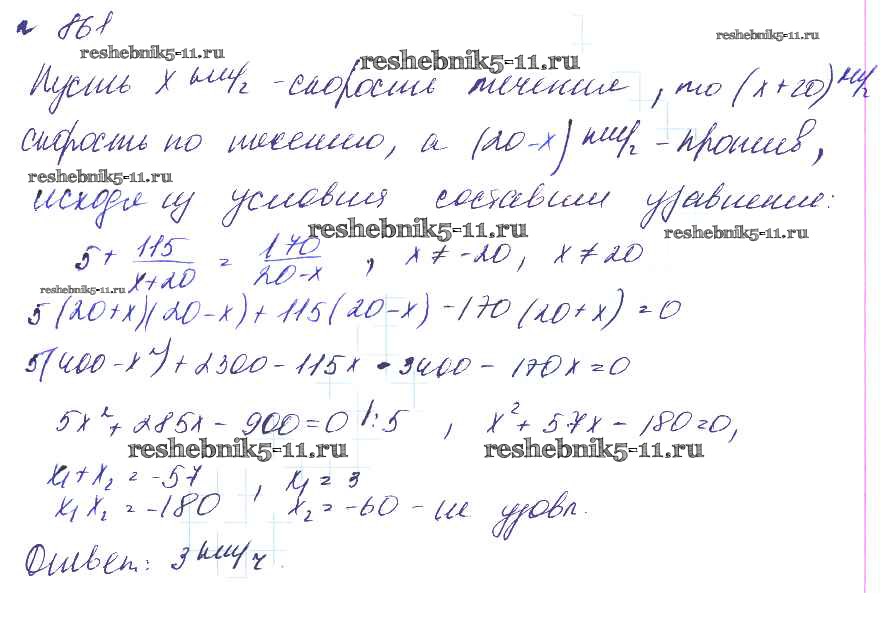 № 861
reshebnik5-11.ru
reshebnik5-11.ru
reshebnik5-11.ru
Пусть x км/ч - скорость течения, то (x+20) км/ч
скорость по течению, а (20-x) км/ч - против,
reshebnik5-11.ru
исходя из условия составим уравнение:
reshebnik5-11.ru
reshebnik5-11.ru
5 + 115/(x+20) = 170/(20-x) , x ≠ -20, x ≠ 20
reshebnik5-11.ru
5(20+x)(20-x) + 115(20-x) - 170(20+x) = 0
5(400-x²) + 2300 - 115x - 3400 - 170x = 0
5x² + 285x - 900 = 0 |:5 , x² + 57x - 180 = 0,
reshebnik5-11.ru
reshebnik5-11.ru
x₁ + x₂ = -57 , x₁ = 3
x₁ x₂ = -180 x₂ = -60 - не удовл.
Ответ: 3 км/ч.